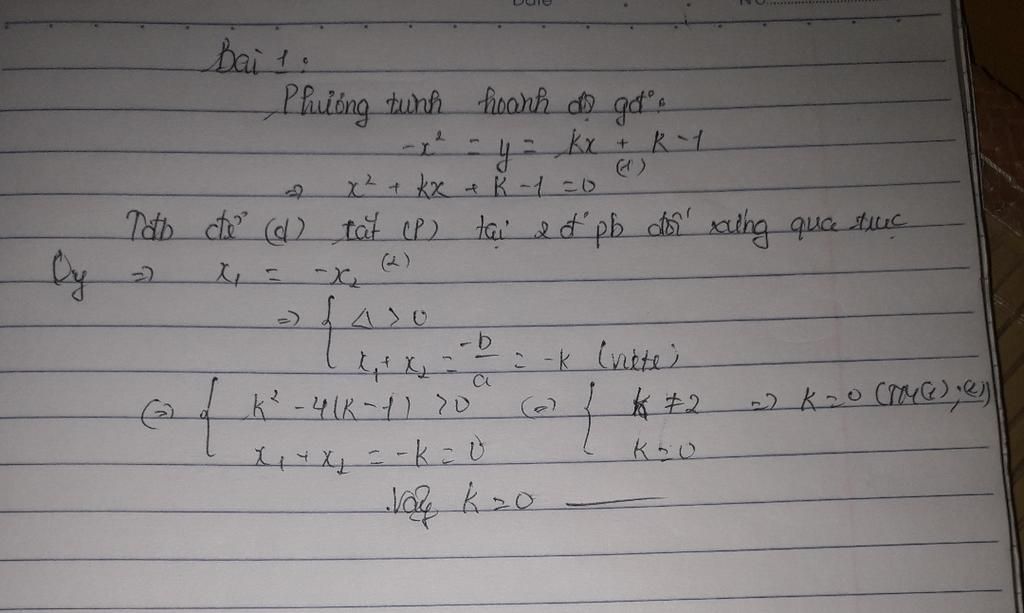 Date NO.
Bài 1:
Phương trình hoành độ gđ:
-x² = y = kx + k - 1
=> x² + kx + k - 1 = 0 (1)
Tdtb để (d) cắt (P) tại 2 đ' pb đối xứng qua trục
Oy => x₁ = -x₂ (2)
=> { Δ > 0
x₁ + x₂ = -b/a = -k (viète)
(=> { k² - 4(k - 1) > 0 (=> { k ≠ 2 => k = 0 (TM(1);(2))
x₁ + x₂ = -k = 0 k = 0
Vậy k = 0